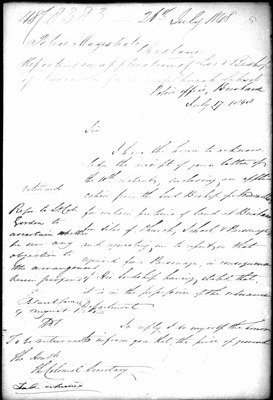 48/8383 - 21st July 1848
Police Magistrate
Brisbane
Reporting on application of Lord Bishop
of Newcastle for Church School
Police Office, Brisbane
July 17. 1848
Sir
I have the honor to acknow-
ledge the receipt of your letter of
the 10th instant, enclosing an appli-
cation from the Lord Bishop of Newcastle
for certain portions of land at Brisbane
for sites of Church, School & Parsonage,
and requesting me to report on that
required for a Parsonage, in consequence
His Lordship having stated, that
it is in the possession of the Ordnance
Department
In reply, I do myself the honor
to inform you that the piece of ground
returned
Refer to Lt Col
Gordon to
ascertain whether
he sees any
objection to
the arrangement
herein proposed
of enquiry
To be returned
The Honble
The Colonial Secretary